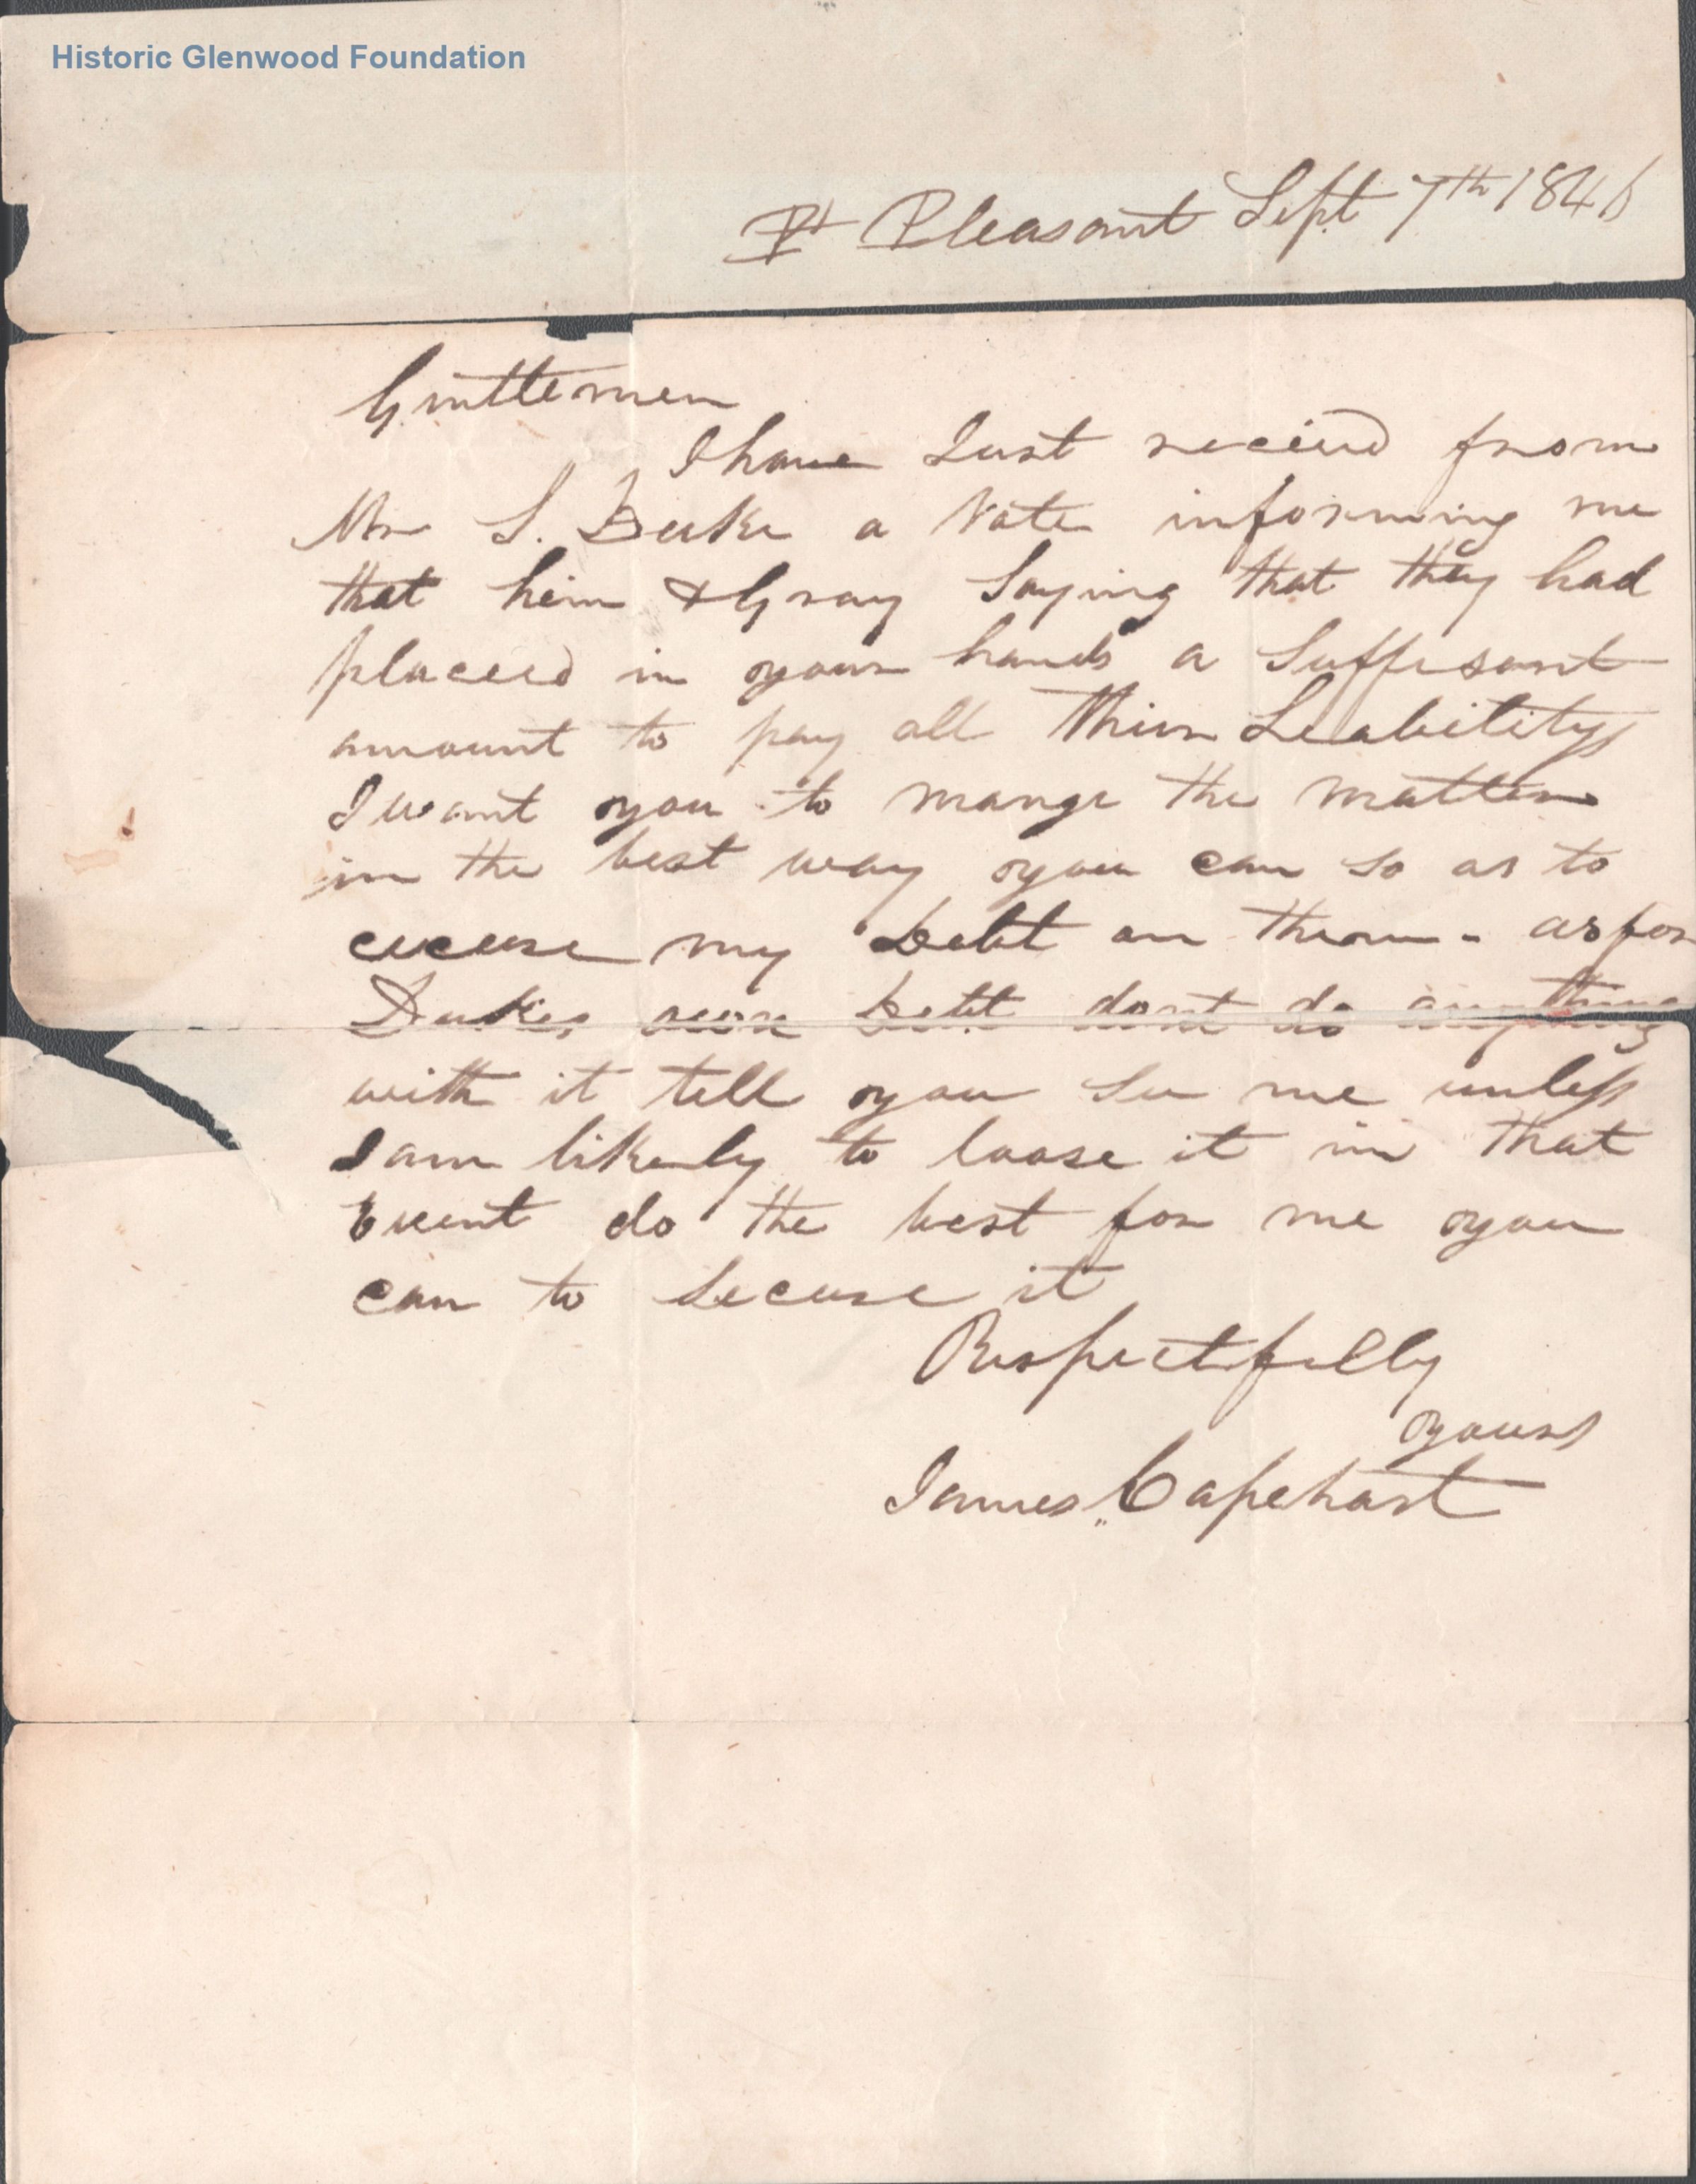 Historic Glenwood Foundation
Pt Pleasant Sept 7th 1846
Ginttemen
I have Just recieid from
Mr S. Duke a Note informing me
that him & Gray Saying that they had
placeed in your hands a Suffisant
amount to pay all thier Leabilitys
I want you to mange the matter
in the best way you can so as to
my Debt on them - as for
Dukes own Debt dont do any thing
with it tell you See me unless
I am likenly to loose it in that
Event do the best for me you
can to Secure it
Respectfully
yours
James Capehart